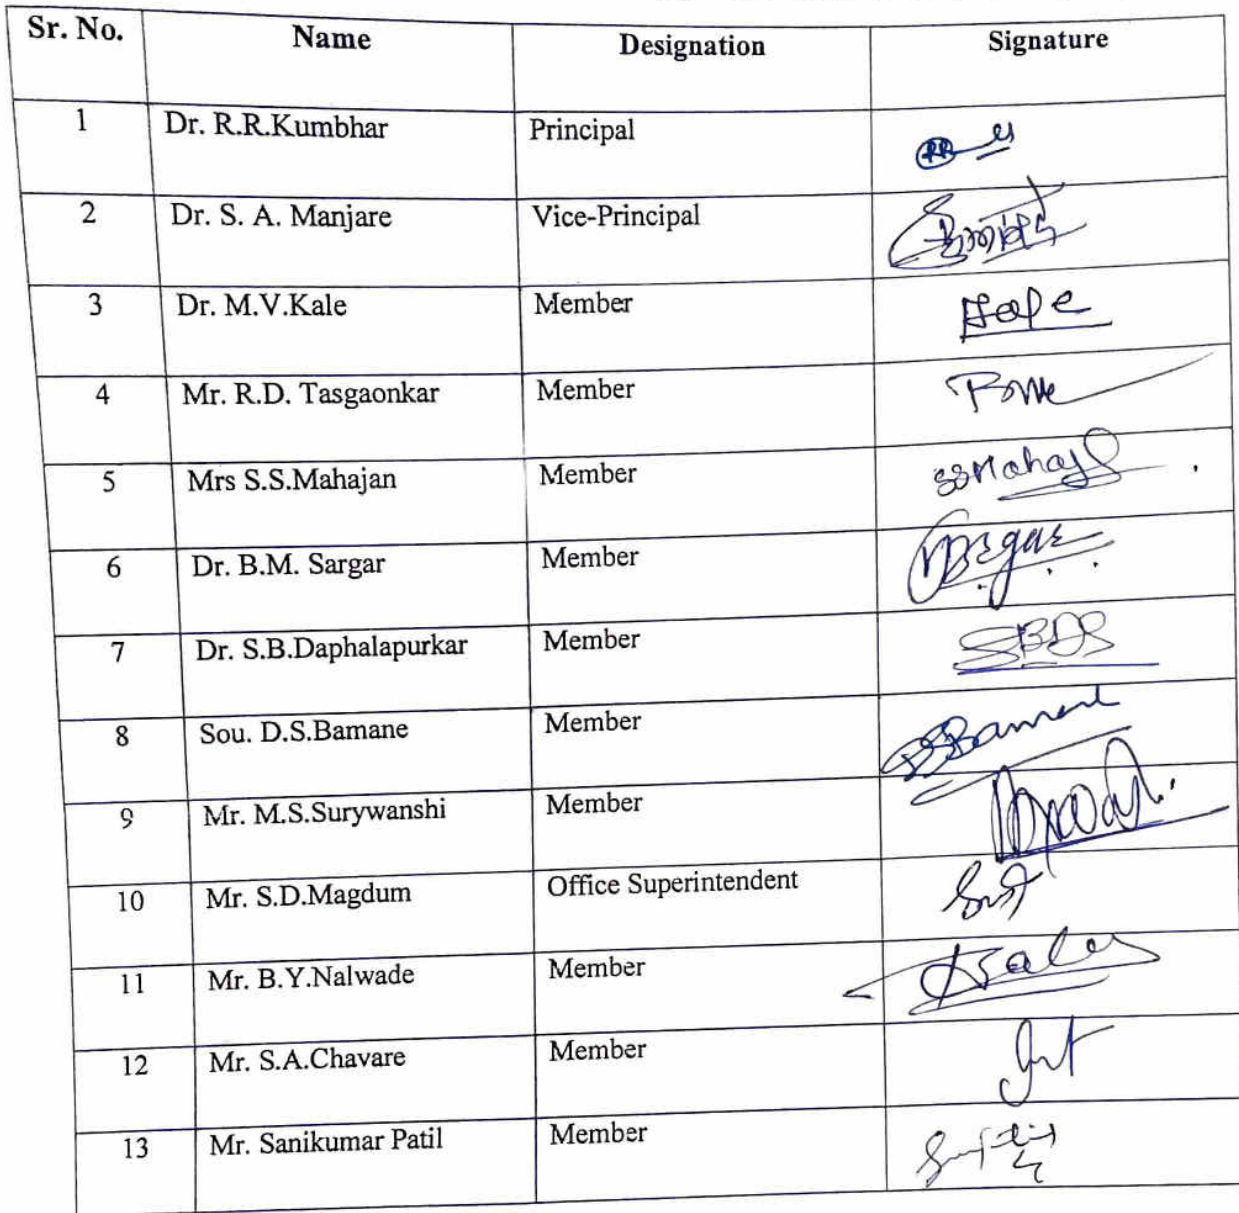 Sr. No. Name Designation Signature
1 Dr. R.R.Kumbhar Principal
2 Dr. S. A. Manjare Vice-Principal
3 Dr. M.V.Kale Member
4 Mr. R.D. Tasgaonkar Member
5 Mrs S.S.Mahajan Member
6 Dr. B.M. Sargar Member
7 Dr. S.B.Daphalapurkar Member
8 Sou. D.S.Bamane Member
9 Mr. M.S.Surywanshi Member
10 Mr. S.D.Magdum Office Superintendent
11 Mr. B.Y.Nalwade Member
12 Mr. S.A.Chavare Member
13 Mr. Sanikumar Patil Member